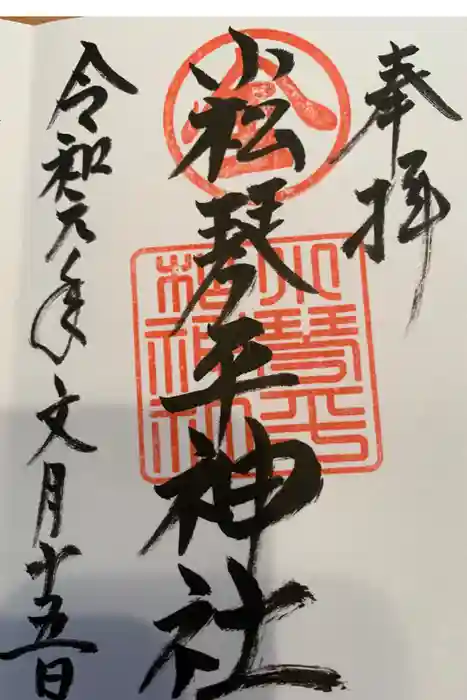 奉拝
金
小松琴平神社
小松琴平神社
令和元年文月十五日